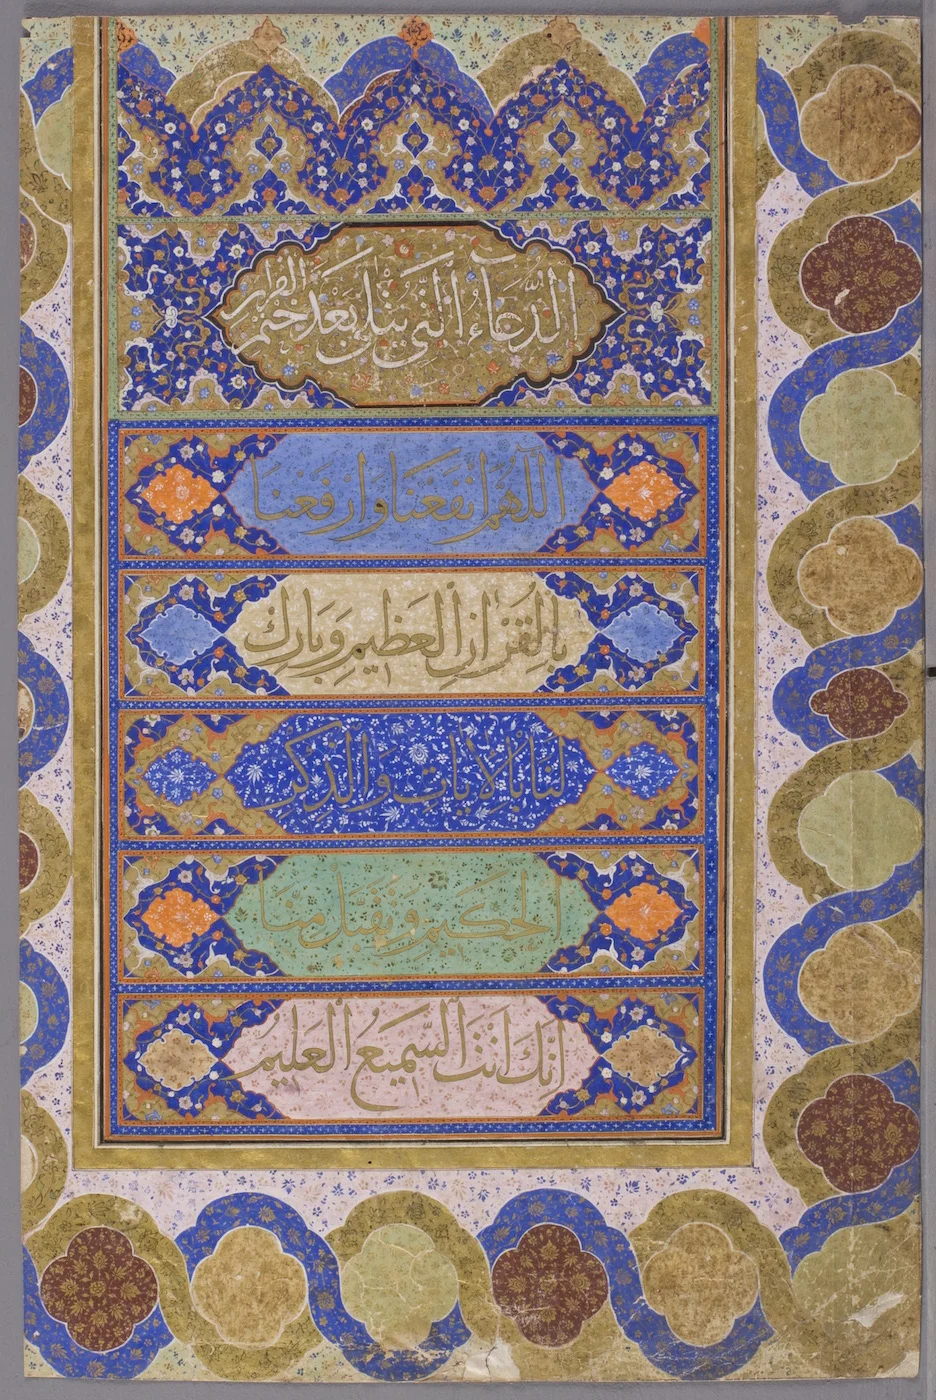 الدعاء التي يتلى بعد ختم القرآن
اللهم انفعنا وارفعنا
بالقرآن العظيم وبارك
لنا بالآيات والذكر
الحكيم وتقبل منا
انك انت السميع العليم